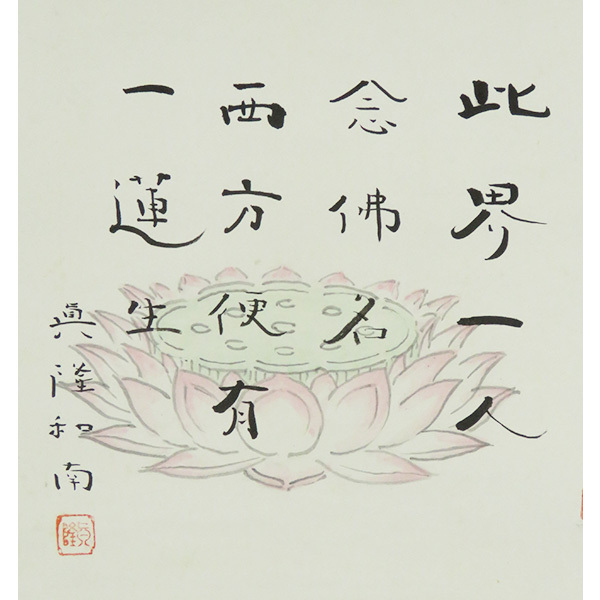 此界一人
念佛名
西方便有
一蓮生
眞隆和南